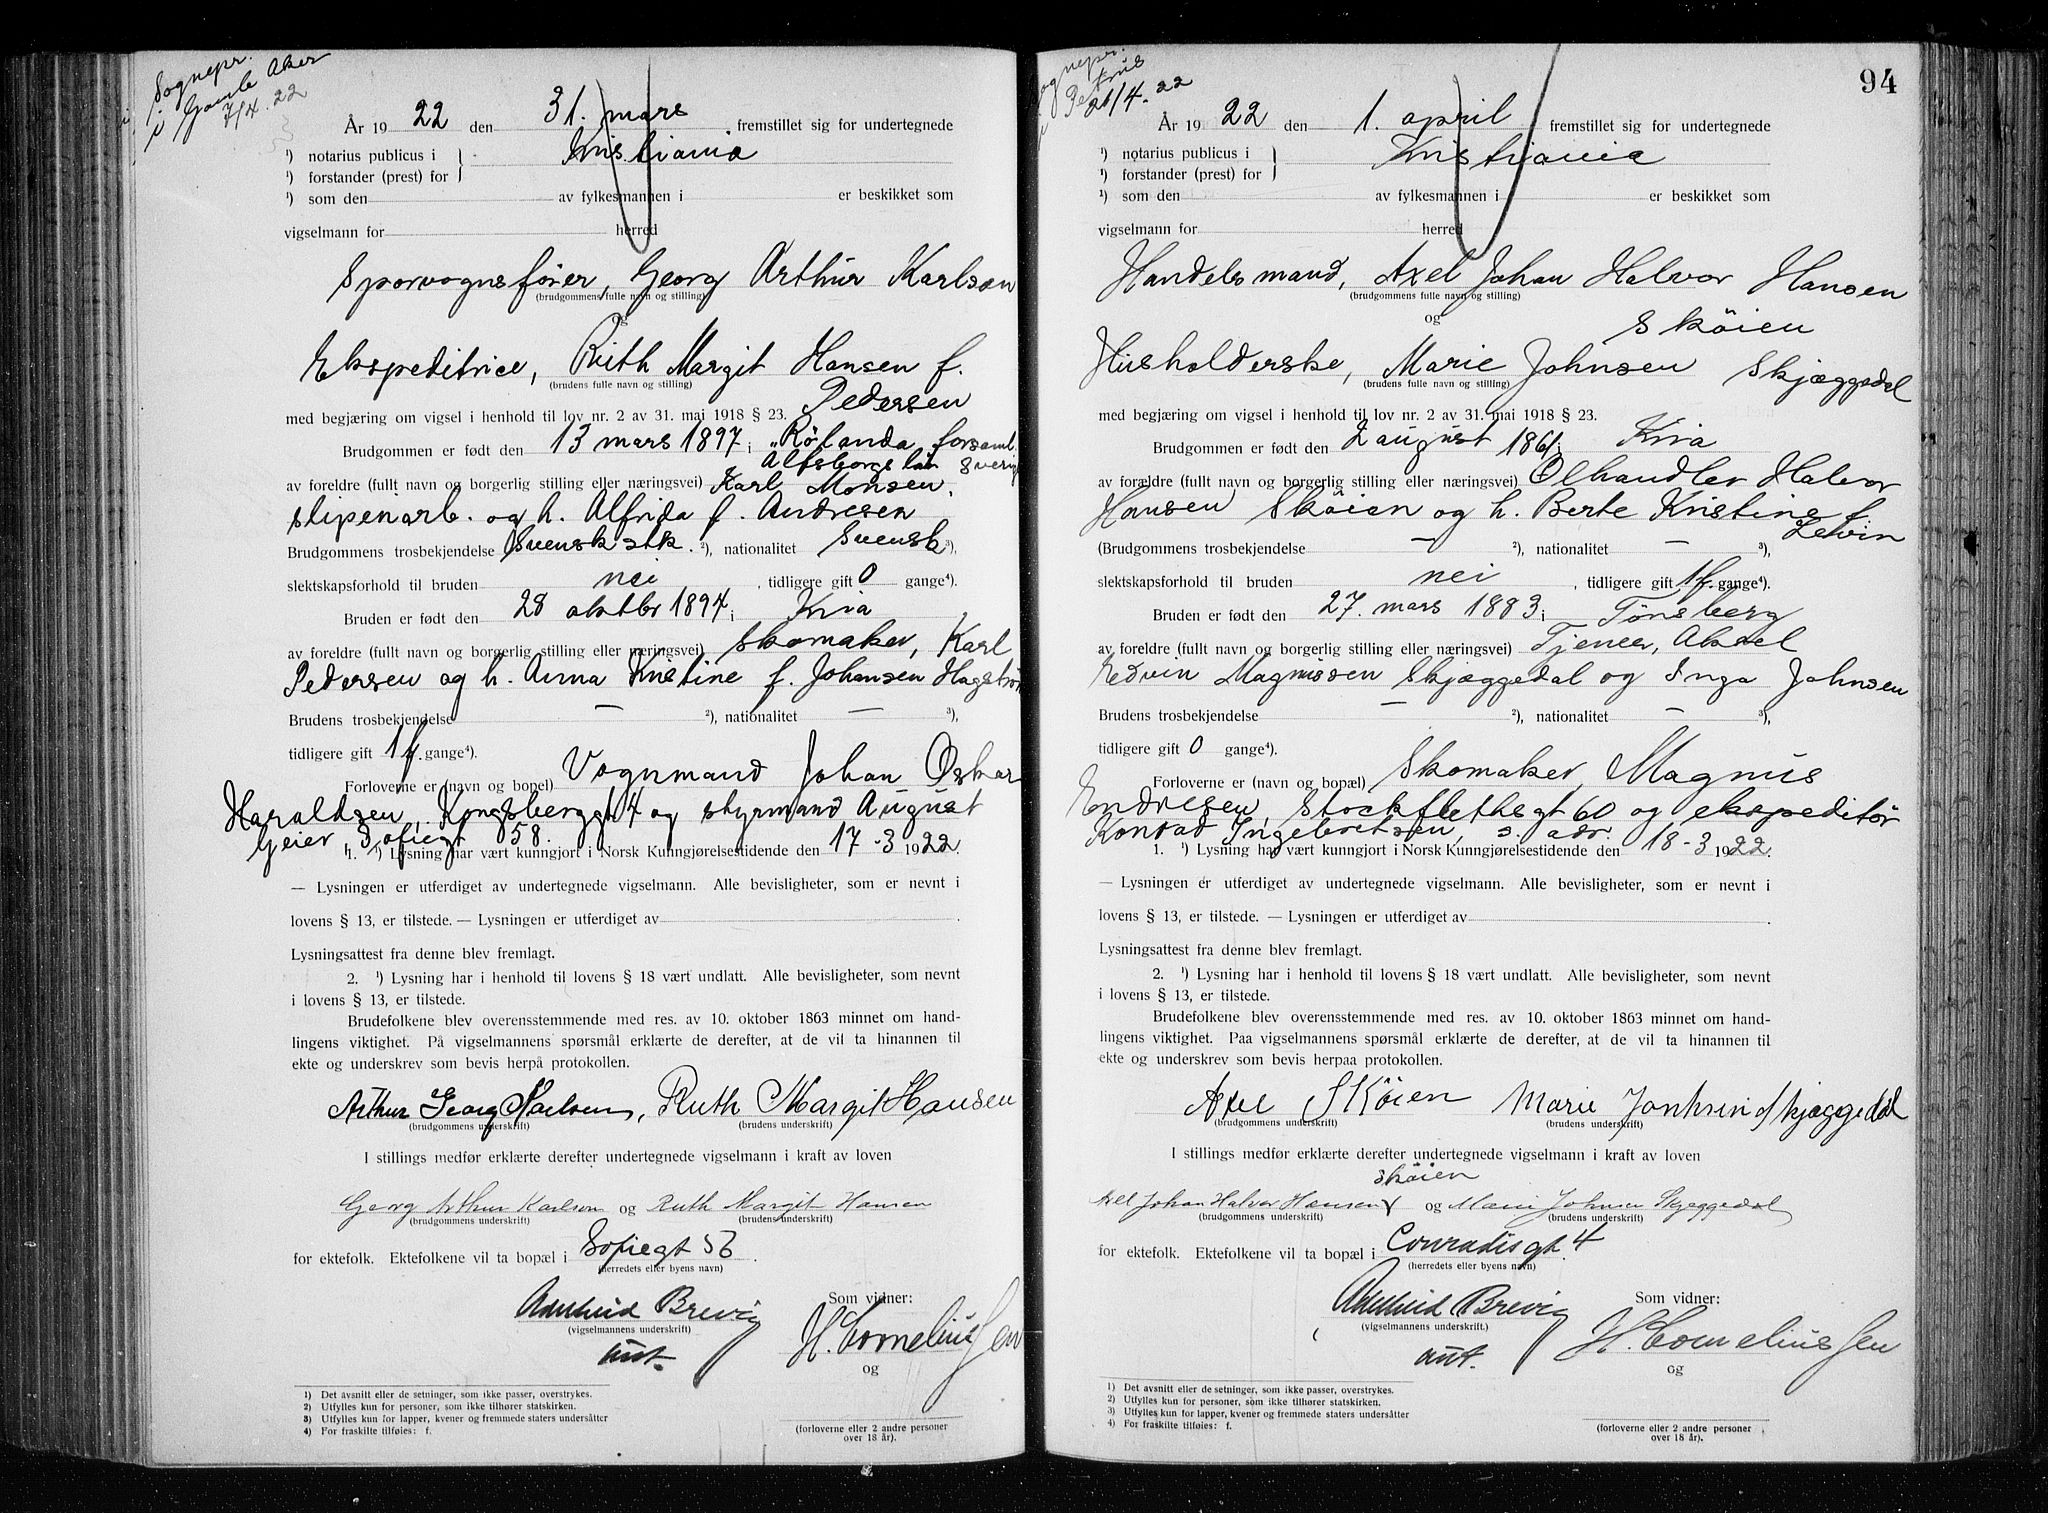 Sognepr.
i Gamle Aker
7/4.22
År 1922 den 31. mars fremstillet sig for undertegnede
¹) notarius publicus i Kristiania
¹) forstander (prest) for
¹) som den av fylkesmannen i er beskikket som
vigselmann for herred
Sporvognsfører, Georg Arthur Karlson
(brudgommens fulle navn og stilling)
og
Ekspeditrice, Ruth Margit Hansen f.
(brudens fulle navn og stilling)
Pedersen
med begjæring om vigsel i henhold til lov nr. 2 av 31. mai 1918 § 23.
Brudgommen er født den 13 mars 1897 i Rølanda forsaml.
Alfsborgs län Sverig
av foreldre (fullt navn og borgerlig stilling eller næringsvei) Karl Monsen,
slipenarb. og h. Alfrida f. Andresen
Brudgommens trosbekjendelse Svensk stk. ²), nationalitet Svensk ³),
slektskapsforhold til bruden nei, tidligere gift 0 gange⁴).
Bruden er født den 28 oktbr 1894 i Kria
av foreldre (fullt navn og borgerlig stilling eller næringsvei) Skomaker, Karl
Pedersen og h. Anna Kristine f. Johansen
Brudens trosbekjendelse — ²), nationalitet — ³),
tidligere gift 1 f. gange⁴).
Forloverne er (navn og bopel) Vognmand Johan Oskar
Haraldsen, Kongsberggt 4 og styrmand August
Geier Sofiegt 58.
1. ¹) Lysning har vært kunngjort i Norsk Kunngjørelsestidende den 17-3 1922.
— Lysningen er utferdiget av undertegnede vigselmann. Alle bevisligheter, som er nevnt i
lovens § 13, er tilstede. — Lysningen er utferdiget av
Lysningsattest fra denne blev fremlagt.
2. ¹) Lysning har i henhold til lovens § 18 vært undlatt. Alle bevisligheter, som nevnt
i lovens § 13, er tilstede.
Brudefolkene blev overensstemmende med res. av 10. oktober 1863 minnet om hand-
lingens viktighet. På vigselmannens spørsmål erklærte de derefter, at de vil ta hinannen til
ekte og underskrev som bevis herpå protokollen.
Arthur Georg Karlson, Ruth Margit Hansen
(brudgommens underskrift) (brudens underskrift)
I stillings medfør erklærte derefter undertegnede vigselmann i kraft av loven
Georg Arthur Karlson og Ruth Margit Hansen
(brudgommens underskrift) (brudens underskrift)
for ektefolk. Ektefolkene vil ta bopæl i Sofiegt 56.
(herredets eller byens navn)
Adelheid Brevig
(vigselmannens underskrift)
aut.
Som vidner:
H. Corneliussen
og
(forloverne eller 2 andre personer
over 18 år).
1) Det avsnitt eller de setninger, som ikke passer, overstrykes.
2) Utfylles kun for personer, som ikke tilhører statskirken.
3) Utfylles kun for lapper, kvener og fremmede staters undersåtter
4) For fraskilte tilføies: f.
94
Sognepr.
i Petrus
21/4.22
År 1922 den 1. april fremstillet sig for undertegnede
¹) notarius publicus i Kristiania
¹) forstander (prest) for
¹) som den av fylkesmannen i er beskikket som
vigselmann for herred
Handelsmand, Axel Johan Halvor Hansen
(brudgommens fulle navn og stilling)
og Sköien
Husholderske, Marie Johnsen Skjæggedal
(brudens fulle navn og stilling)
med begjæring om vigsel i henhold til lov nr. 2 av 31. mai 1918 § 23.
Brudgommen er født den 2 august 1861 i Kria
av foreldre (fullt navn og borgerlig stilling eller næringsvei) Ölhandler Halvor
Hansen Sköien og h. Berte Kristine f.
Letvin
(Brudgommens trosbekjendelse — ²), nationalitet — ³),
slektskapsforhold til bruden nei, tidligere gift 1 f. gange⁴).
Bruden er født den 27. mars 1883 i Tønsberg
av foreldre (fullt navn og borgerlig stilling eller næringsvei) Tjener, Aksel
Edvin Magnussen Skjæggedal og Inga Johnsen
Brudens trosbekjendelse — ²), nationalitet — ³),
tidligere gift 0 gange⁴).
Forloverne er (navn og bopæl) Skomaker Magnus
Endresen, Stockflethsgt 60 og ekspeditör
Konrad Ingebretsen, s. adr.
1. ¹) Lysning har vært kunngjort i Norsk Kunngjørelsestidende den 18-3 1922.
— Lysningen er utferdiget av undertegnede vigselmann. Alle bevisligheter, som er nevnt i
lovens § 13, er tilstede. — Lysningen er utferdiget av
Lysningsattest fra denne blev fremlagt.
2. ¹) Lysning har i henhold til lovens § 18 vært undlatt. Alle bevisligheter, som nevnt
i lovens § 13, er tilstede.
Brudefolkene blev overensstemmende med res. av 10. oktober 1863 minnet om hand-
lingens viktighet. Paa vigselmannens spørsmål erklærte de derefter, at de vil ta hinannen til
ekte og underskrev som bevis herpaa protokollen.
Axel Sköien Marie Jonhsen Skjæggedal
(brudgommens underskrift) (brudens underskrift)
I stillings medfør erklærte derefter undertegnede vigselmann i kraft av loven
Sköien
Axel Johan Halvor Hansen og Marie Johnsen Skjeggedal
(brudgommens underskrift) (brudens underskrift)
for ektefolk. Ektefolkene vil ta bopæl i Conradisgt. 4
(herredets eller byens navn)
Adelheid Brevig
(vigselmannens underskrift.)
aut.
Som vidner:
H. Corneliussen
og
(forloverne eller 2 andre personer
over 18 år).
1) Det avsnitt eller de setninger, som ikke passer, overstrykes.
2) Utfylles kun for personer, som ikke tilhører statskirken.
3) Utfylles kun for lapper, kvener og fremmede staters undersåtter
4) For fraskilte tilføies: f.